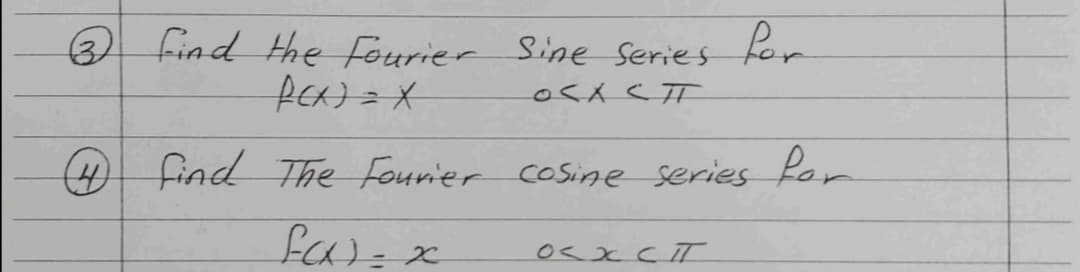 ③ find the Fourier Sine Series for
f(x) = x 0<x<π
④ find The Fourier cosine series for
f(x) = x 0<x<π